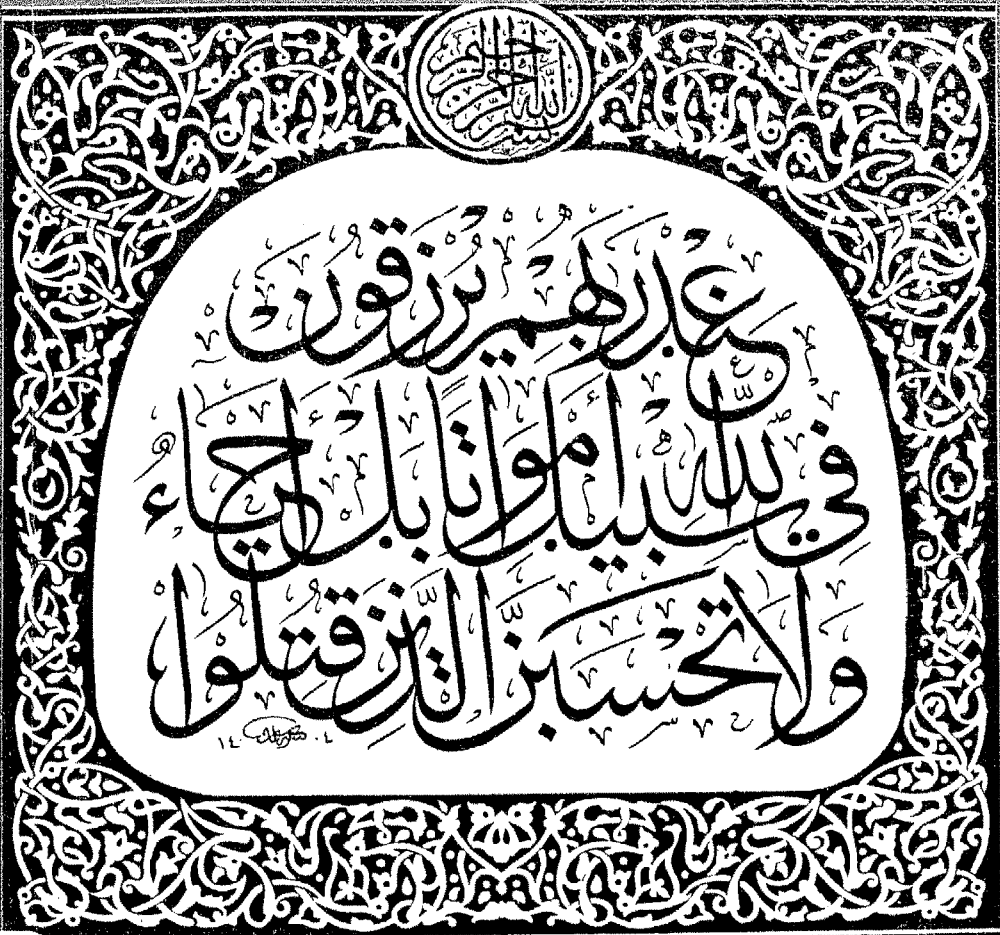 بسم الله الرحمن الرحيم
ولا تحسبن الذين قتلوا
في سبيل الله أمواتا بل أحياء
عند ربهم يرزقون
١٤٠٤